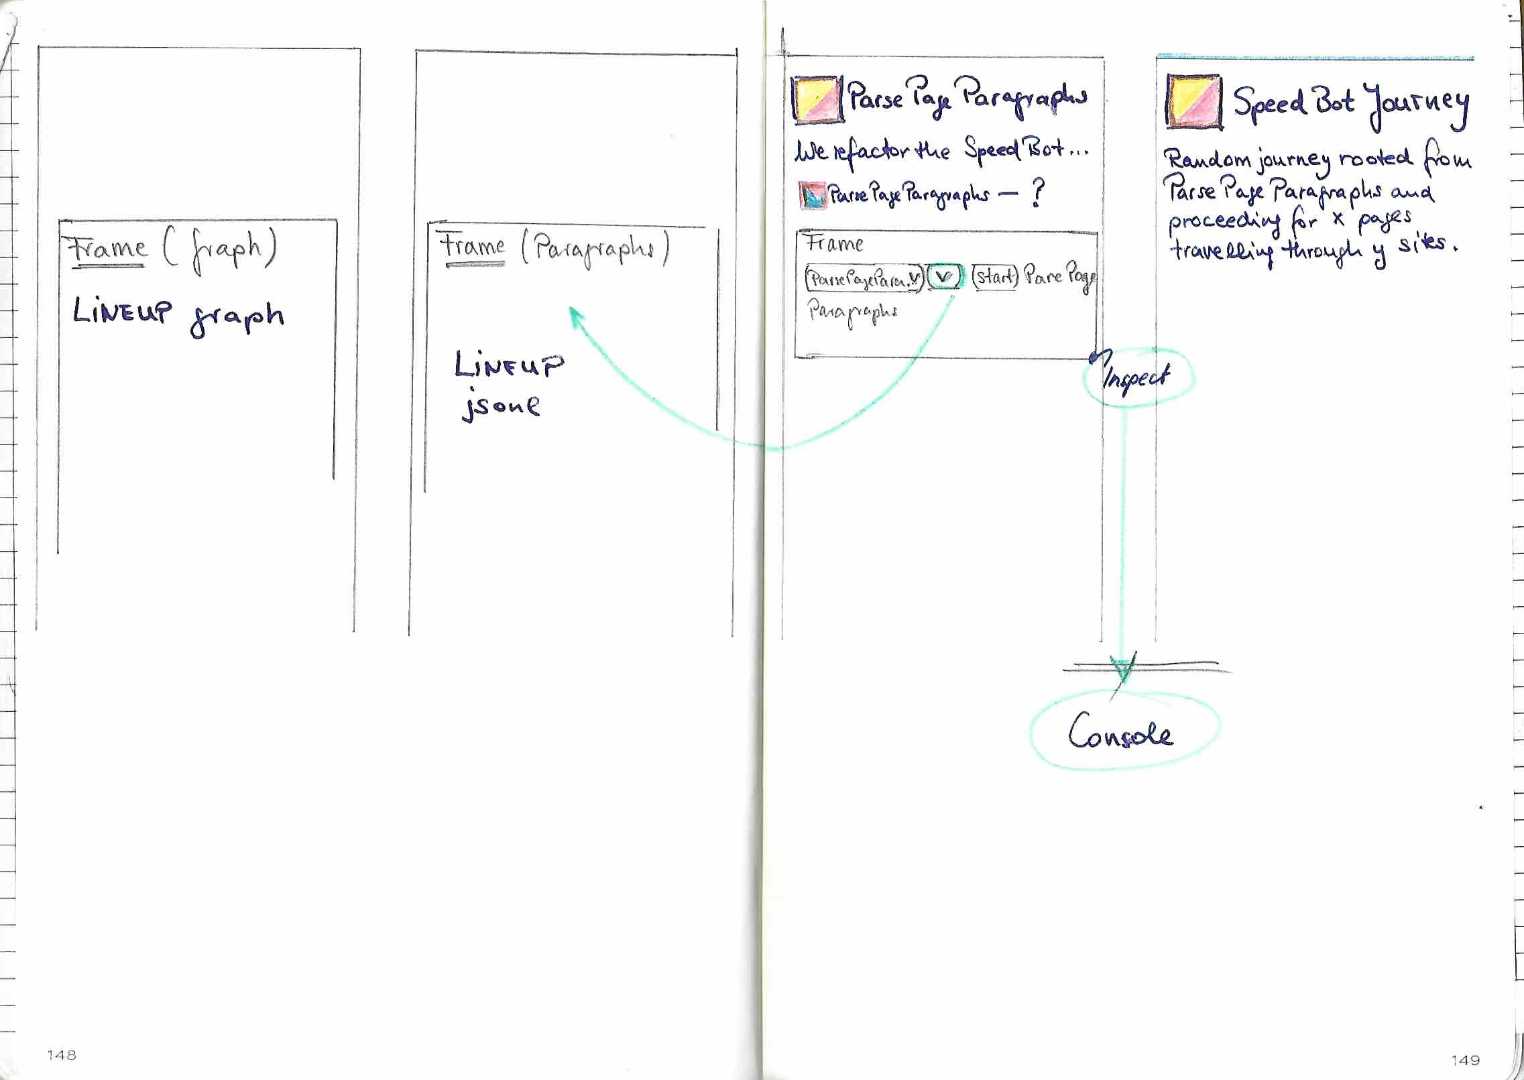 Frame (graph)
LINEUP graph
Frame (Paragraphs)
LINEUP
jsonl
Parse Page Paragraphs
We refactor the Speed Bot...
Parse Page Paragraphs — ?
Frame
ParsePagePara. v
v
start
Pare Page
Paragraphs
Inspect
Console
Speed Bot Journey
Random journey rooted from
Parse Page Paragraphs and
proceeding for x pages
travelling through y sites.
148
149